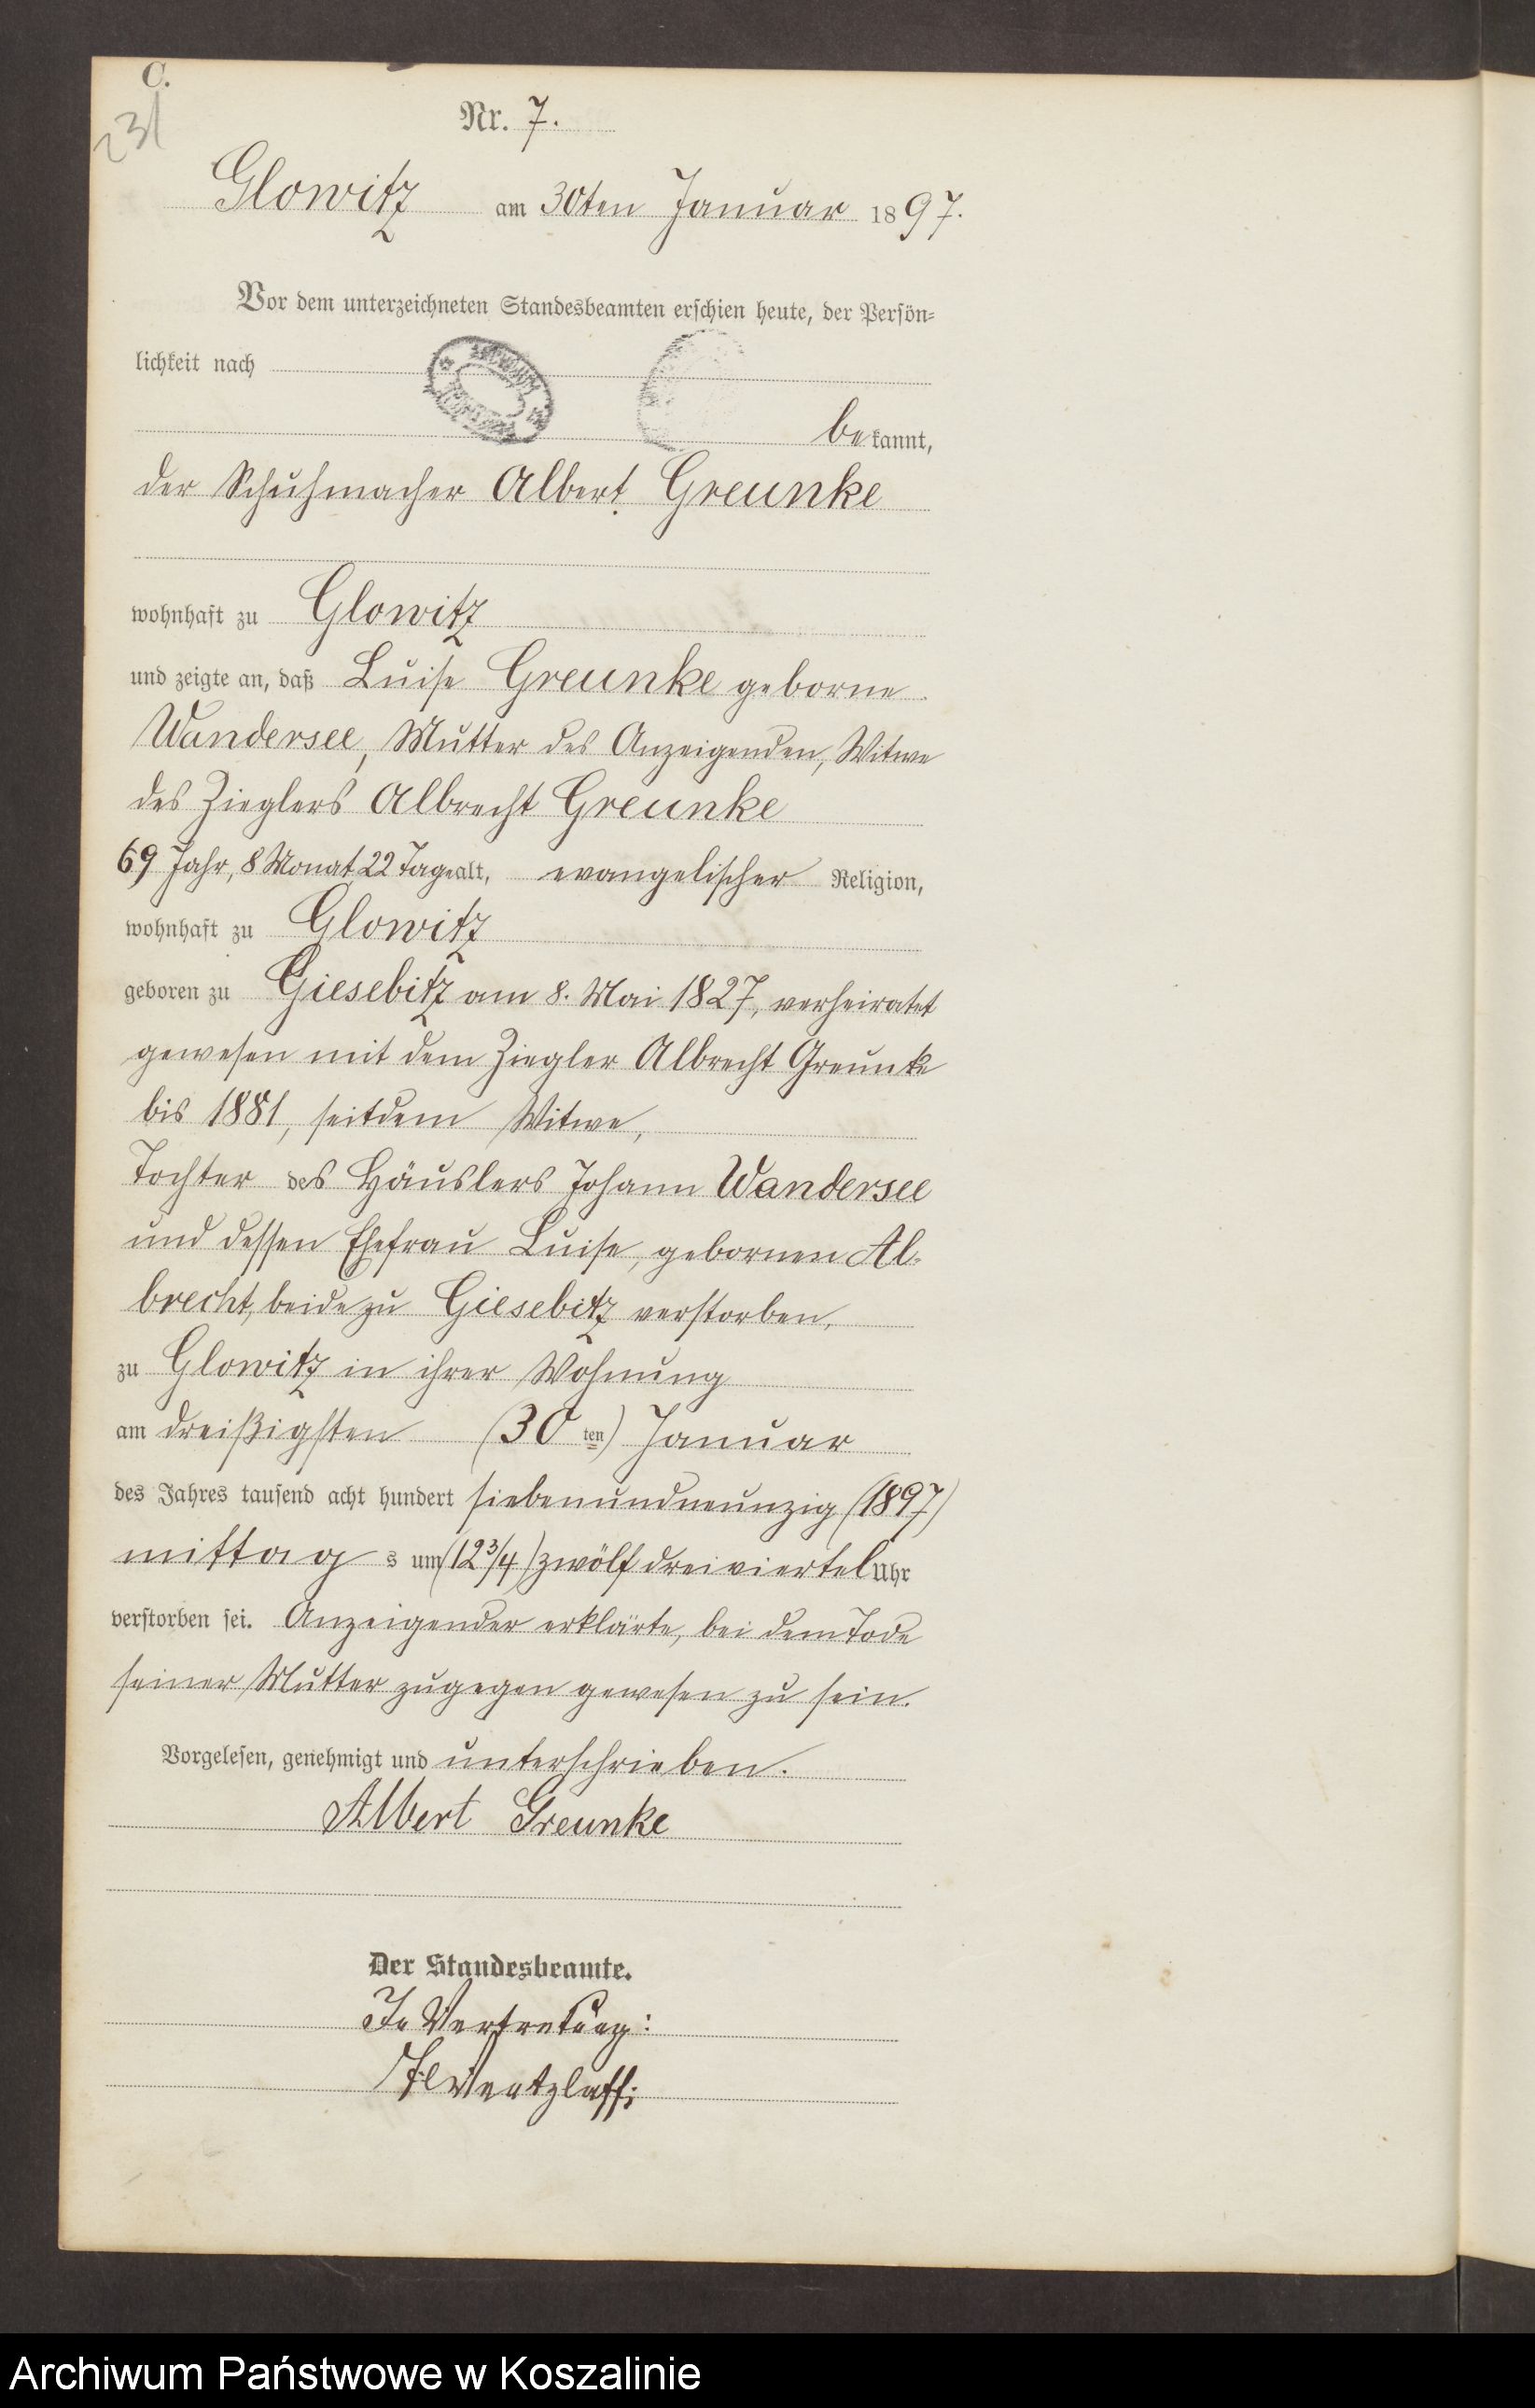 C.
231
Nr. 7.
Glowitz am 30ten Januar 1897.
Vor dem unterzeichneten Standesbeamten erschien heute, der Persön-
lichkeit nach
bekannt,
der Schuhmacher Albert Greunke
wohnhaft zu Glowitz
und zeigte an, daß Luise Greunke geborne
Wandersee, Mutter des Anzeigenden, Witwe
des Zieglers Albrecht Greunke
69 Jahr, 8 Monat 22 Tage alt, evangelischer Religion,
wohnhaft zu Glowitz
geboren zu Giesebitz am 8. Mai 1827, verheiratet
gewesen mit dem Ziegler Albrecht Greunke
bis 1881, seitdem Witwe,
Tochter des Häuslers Johann Wandersee
und dessen Ehefrau Luise, gebornen Al-
brecht, beide zu Giesebitz verstorben,
zu Glowitz in ihrer Wohnung
am dreißigsten (30ten) Januar
des Jahres tausend acht hundert siebenundneunzig (1897)
mittags um (12 3/4) zwölf dreiviertel Uhr
verstorben sei. Anzeigender erklärte, bei dem Tode
seiner Mutter zugegen gewesen zu sein.
Vorgelesen, genehmigt und unterschrieben.
Albert Greunke
Der Standesbeamte.
In Vertretung:
Archiwum Państwowe w Koszalinie